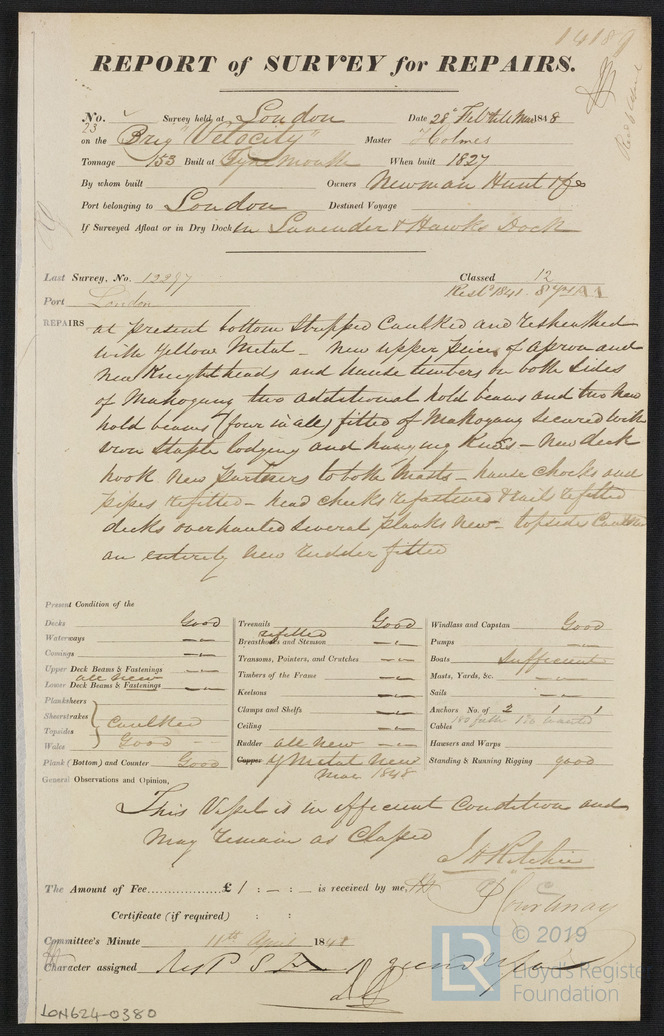 14189
REPORT of SURVEY for REPAIRS.
No. 23 Survey held at London Date 28th Feb till Mar 1848
on the Brig "Velocity" Master Holmes
Tonnage 153 Built at Tynemouth When built 1827
By whom built Owners Newman Hunt & Co
Port belonging to London Destined Voyage
If Surveyed Afloat or in Dry Dock in Lavender & Hawks Dock
Last Survey, No. 12297 Classed 12
Port London Rest 1841. 8 yrs A1
REPAIRS at present bottom stripped Caulked and resheathed
with Yellow Metal - new upper piece of apron and
new Knightheads and hause timbers on both sides
of Mahogany two additional hold beams and two new
hold beams (four in all) fitted of Mahogany Secured with
iron Staple lodging and hanging Knees - New deck
hook New partners to both Masts - hause chocks and
pipes refitted - head cheeks refastened & rails refitted
decks overhauled several planks new - topside Caulked
an entirely new rudder fitted
Present Condition of the
Decks Good
Waterways
Comings
Upper Deck Beams & Fastenings
all new
Lower Deck Beams & Fastenings
Planksheers
Sheerstrakes
Topsides
Wales
Caulked
Good
Plank (Bottom) and Counter Good
Treenails Good
refitted
Breasthooks and Stemson
Transoms, Pointers, and Crutches
Timbers of the Frame
Keelsons
Clamps and Shelfs
Ceiling
Rudder all new
Copper Y Metal New
Mar 1848
Windlass and Capstan Good
Pumps
Boats Sufficient
Masts, Yards, &c.
Sails
Anchors No. of 2 1 1
Cables 180 fath
Hawsers and Warps
Standing & Running Rigging good
General Observations and Opinion,
This Vessel is in efficient Condition and
may remain as Classed
J H Ritchie
T Courtenay
The Amount of Fee............... £ 1 : - : - is received by me,
Certificate (if required) : :
Committee's Minute 11th April 1848
Character assigned
LON624-0380
LR
© 2019
Lloyd's Register
Foundation